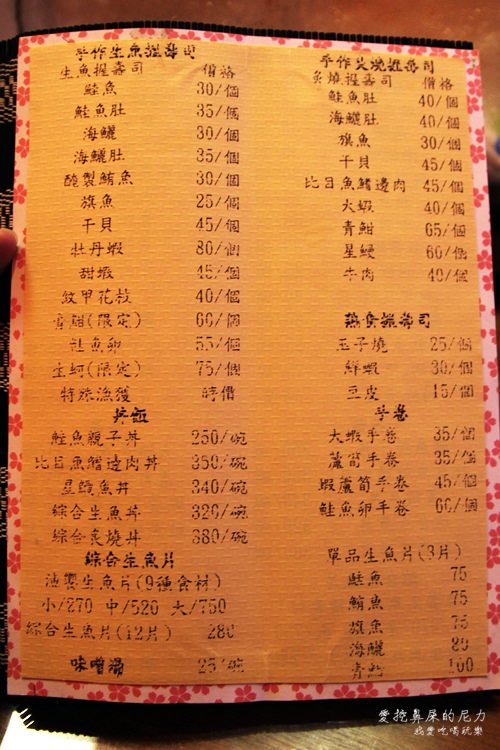 手作生魚握壽司
生魚握壽司 價格
鮭魚 30/個
鮭魚肚 35/個
海鱺 30/個
海鱺肚 35/個
醃製鮪魚 30/個
旗魚 25/個
干貝 45/個
牡丹蝦 80/個
甜蝦 45/個
紋甲花枝 40/個
青魽(限定) 60/個
鮭魚卵 55/個
生蚵(限定) 75/個
特殊漁獲 時價
丼飯
鮭魚親子丼 250/碗
比目魚鰭邊肉丼 350/碗
星鰻魚丼 340/碗
綜合生魚丼 320/碗
綜合炙燒丼 380/碗
綜合生魚片
漁饗生魚片(9種食材)
小/270 中/520 大/750
綜合生魚片(12片) 280
味噌湯 25/碗
手作炙燒握壽司
炙燒握壽司 價格
鮭魚肚 40/個
海鱺肚 40/個
旗魚 30/個
干貝 45/個
比目魚鰭邊肉 45/個
大蝦 40/個
青魽 65/個
星鰻 60/個
牛肉 40/個
熟食握壽司
玉子燒 25/個
鮮蝦 30/個
豆皮 15/個
手卷
大蝦手卷 35/個
蘆筍手卷 35/個
蝦蘆筍手卷 45/個
鮭魚卵手卷 60/個
單品生魚片(3片)
鮭魚 75
鮪魚 75
旗魚 75
海鱺 80
青魽 100
愛挖鼻屎的尼力
我愛吃喝玩樂